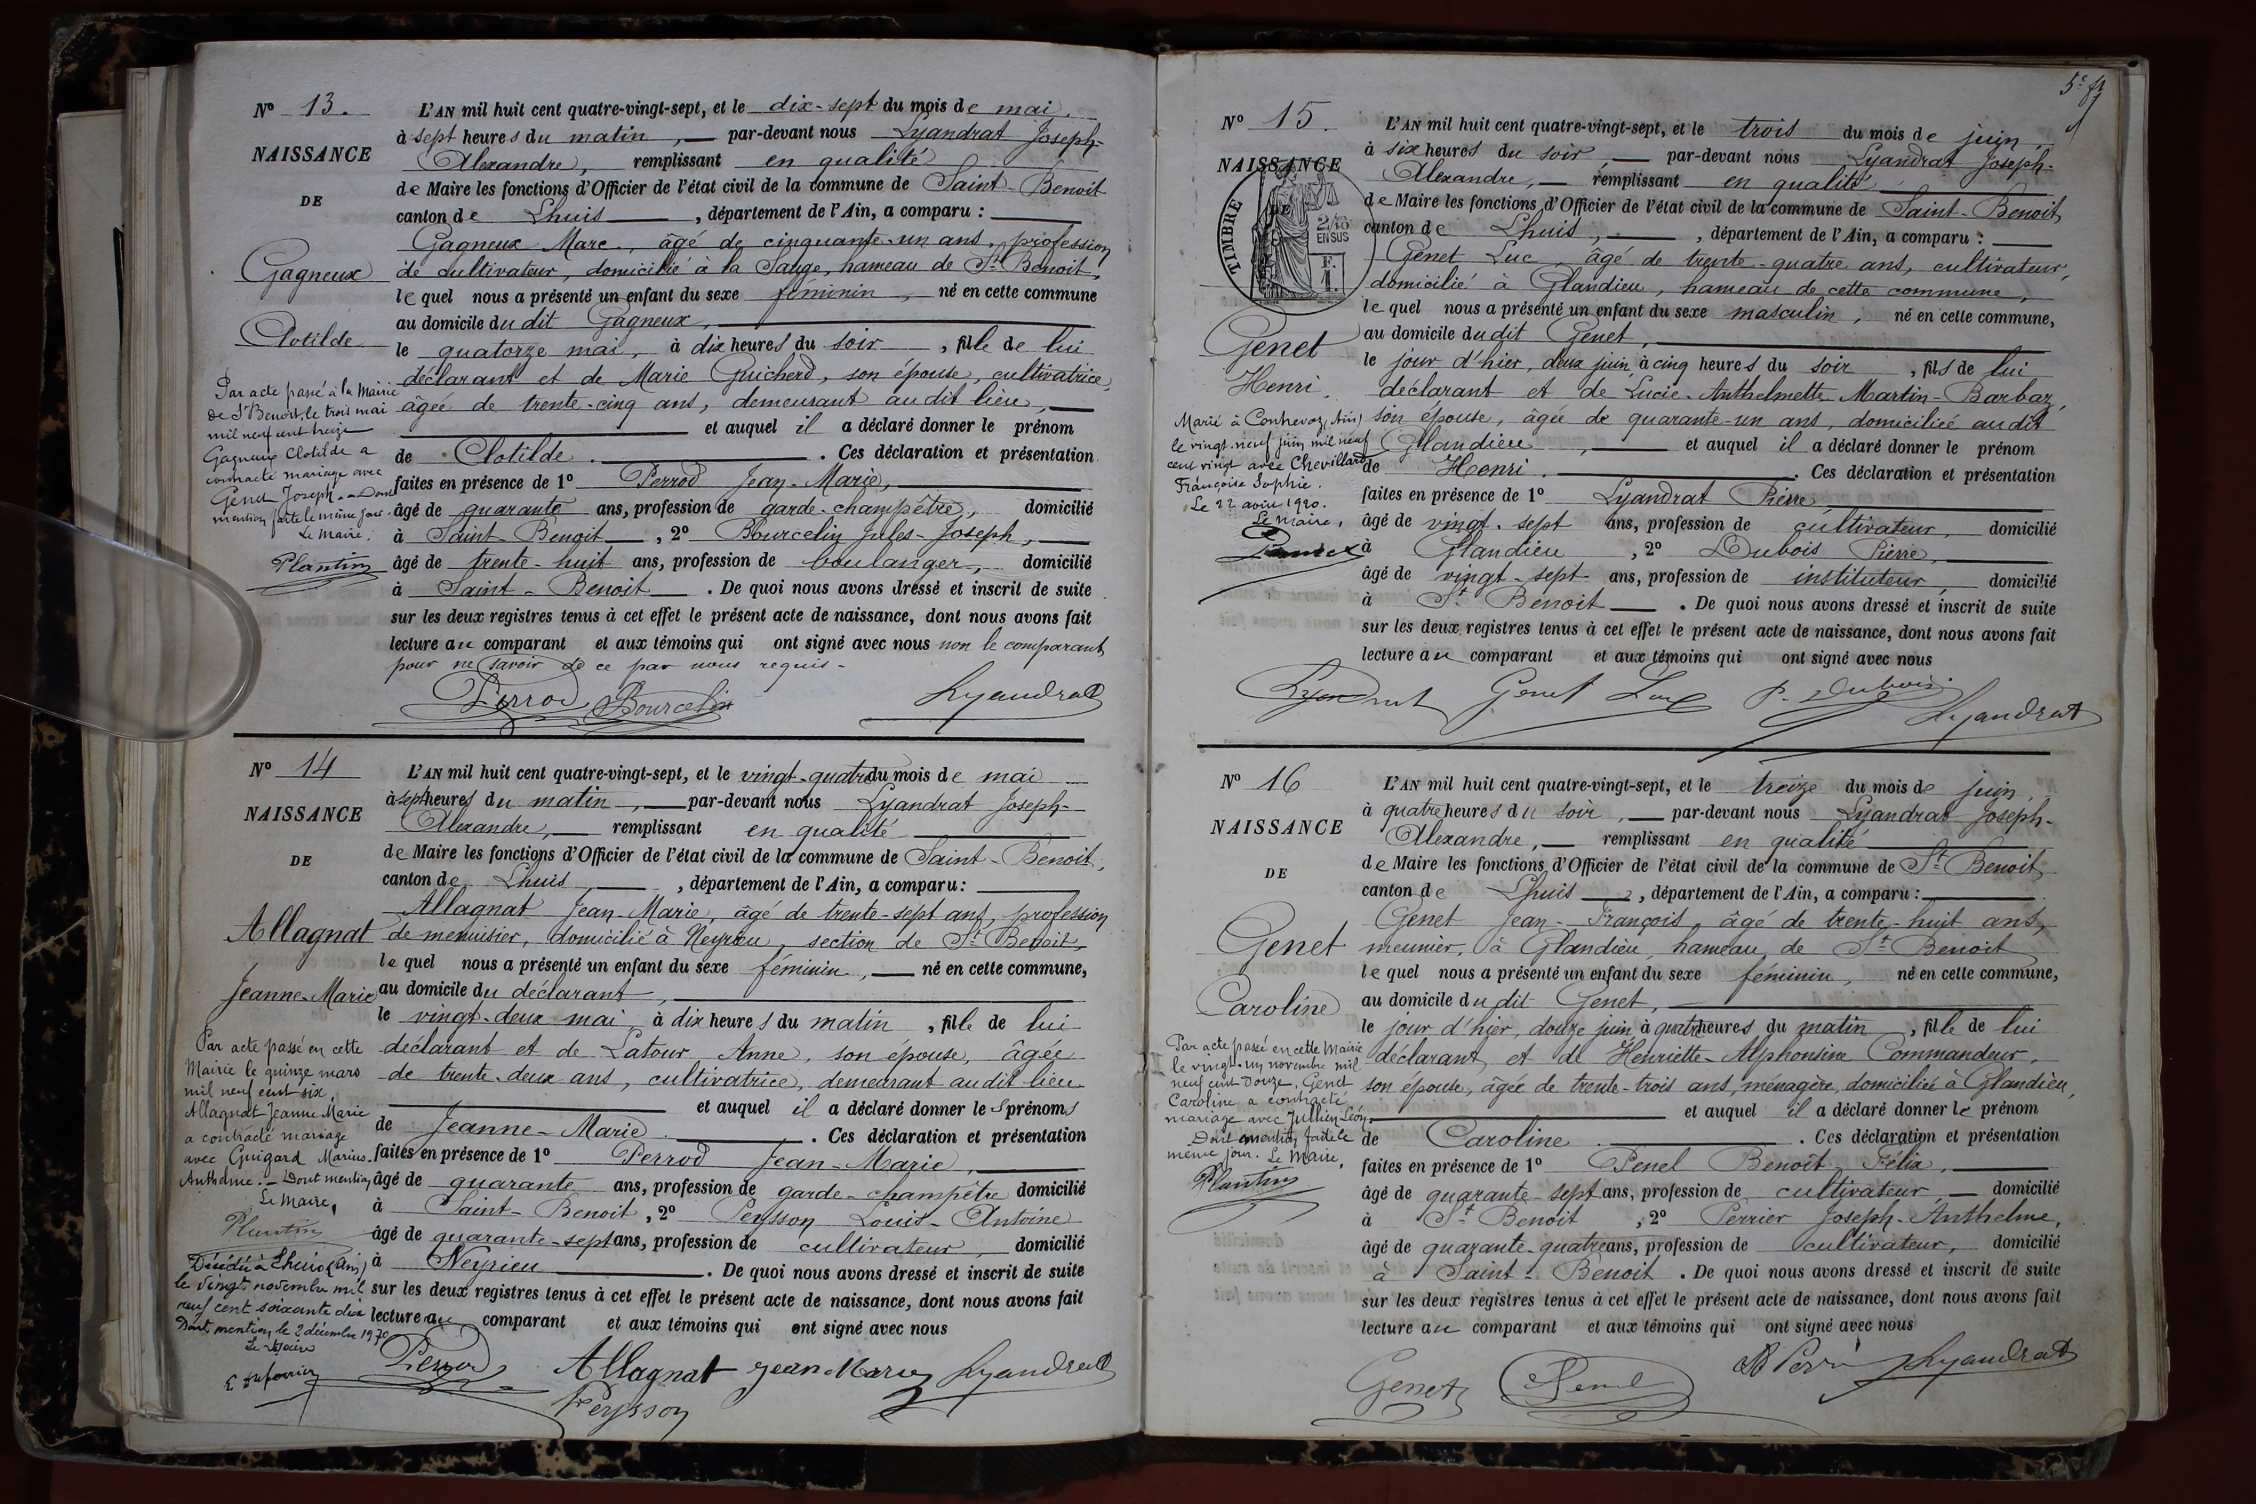 N° 13.
NAISSANCE
DE
Gagneux
Clotilde
Par acte passé à la Mairie
de St Benoit, le trois mai
mil neuf cent treize
Gagneux Clotilde a
contracté mariage avec
Genet Joseph. - Dont
mention faite le même jour.
Le Maire.
Plantin
L'AN mil huit cent quatre-vingt-sept, et le dix-sept du mois de mai,
à sept heures du matin, par-devant nous Lyandrat Joseph-
Alexandre, remplissant en qualité
de Maire les fonctions d'Officier de l'état civil de la commune de Saint-Benoit
canton de Lhuis, département de l'Ain, a comparu :
Gagneux Marc, âgé de cinquante-un ans, profession
de cultivateur, domicilié à la Sauge, hameau de St Benoit,
lequel nous a présenté un enfant du sexe féminin, né en cette commune
au domicile dudit Gagneux,
le quatorze mai, à dix heures du soir, fille de lui
déclarant et de Marie Guicherd, son épouse, cultivatrice,
âgée de trente-cinq ans, demeurant audit lieu,
et auquel il a déclaré donner le prénom
de Clotilde. . Ces déclaration et présentation
faites en présence de 1° Perrod Jean-Marie,
âgé de quarante ans, profession de garde-champêtre, domicilié
à Saint-Benoit, 2° Bourcelin Jules-Joseph,
âgé de trente-huit ans, profession de boulanger, domicilié
à Saint-Benoit. De quoi nous avons dressé et inscrit de suite
sur les deux registres tenus à cet effet le présent acte de naissance, dont nous avons fait
lecture au comparant et aux témoins qui ont signé avec nous non le comparant
pour ne savoir de ce par nous requis.
Perrod Bourcelin Lyandrat
N° 14
NAISSANCE
DE
Allagnat
Jeanne-Marie
Par acte passé en cette
Mairie le quinze mars
mil neuf cent six,
Allagnat Jeanne Marie
a contracté mariage
avec Guigard Marius
Anthelme. - Dont mention
Le Maire,
Plantin
Décédée à Lhuis (Ain)
le vingt novembre mil
neuf cent soixante dix
Dont mention le 2 décembre 1970
Le Maire
L'AN mil huit cent quatre-vingt-sept, et le vingt-quatre du mois de mai
à sept heures du matin, par-devant nous Lyandrat Joseph-
Alexandre, remplissant en qualité
de Maire les fonctions d'Officier de l'état civil de la commune de Saint-Benoit,
canton de Lhuis, département de l'Ain, a comparu :
Allagnat Jean-Marie, âgé de trente-sept ans, profession
de menuisier, domicilié à Neyrieu, section de St Benoit,
lequel nous a présenté un enfant du sexe féminin, né en cette commune,
au domicile du déclarant,
le vingt-deux mai à dix heures du matin, fille de lui
déclarant et de Latour Anne, son épouse, âgée
de trente-deux ans, cultivatrice, demeurant audit lieu
et auquel il a déclaré donner les prénoms
de Jeanne-Marie. . Ces déclaration et présentation
faites en présence de 1° Perrod Jean-Marie,
âgé de quarante ans, profession de garde-champêtre domicilié
à Saint-Benoit, 2° Peysson Louis-Antoine
âgé de quarante-sept ans, profession de cultivateur, domicilié
à Neyrieu. De quoi nous avons dressé et inscrit de suite
sur les deux registres tenus à cet effet le présent acte de naissance, dont nous avons fait
lecture au comparant et aux témoins qui ont signé avec nous
Perrod Allagnat jean Marie Lyandrat
Peysson
5e
N° 15.
NAISSANCE
DE
TIMBRE
2/10
EN SUS
F.
1.
Genet
Henri.
Marié à Conhevoz (Ain)
le vingt-neuf juin mil neuf
cent vingt avec Chevillard
Françoise Sophie.
Le 22 août 1920.
Le Maire,
L'AN mil huit cent quatre-vingt-sept, et le trois du mois de juin,
à six heures du soir, par-devant nous Lyandrat Joseph-
Alexandre, remplissant en qualité
de Maire les fonctions d'Officier de l'état civil de la commune de Saint-Benoit
canton de Lhuis, département de l'Ain, a comparu :
Genet Luc, âgé de trente-quatre ans, cultivateur,
domicilié à Glandieu, hameau de cette commune,
lequel nous a présenté un enfant du sexe masculin, né en cette commune,
au domicile dudit Genet,
le jour d'hier, deux juin à cinq heures du soir, fils de lui
déclarant et de Lucie-Anthelmette Martin-Barbaz,
son épouse, âgée de quarante-un ans, domiciliée audit
Glandieu, et auquel il a déclaré donner le prénom
de Henri. . Ces déclaration et présentation
faites en présence de 1° Lyandrat Pierre
âgé de vingt-sept ans, profession de cultivateur, domicilié
à Glandieu, 2° Dubois Pierre,
âgé de vingt-sept ans, profession de instituteur, domicilié
à St Benoit. De quoi nous avons dressé et inscrit de suite
sur les deux registres tenus à cet effet le présent acte de naissance, dont nous avons fait
lecture au comparant et aux témoins qui ont signé avec nous
Lyandrat Genet Luc P. Dubois Lyandrat
N° 16
NAISSANCE
DE
Genet
Caroline
Par acte passé en cette Mairie
le vingt-un novembre mil
neuf cent douze, Genet
Caroline a contracté
mariage avec Jullien Léon.
Dont mention faite le
même jour. Le Maire,
Plantin
L'AN mil huit cent quatre-vingt-sept, et le treize du mois de juin,
à quatre heures du soir, par-devant nous Lyandrat Joseph-
Alexandre, remplissant en qualité
de Maire les fonctions d'Officier de l'état civil de la commune de St Benoit
canton de Lhuis, département de l'Ain, a comparu :
Genet Jean-François, âgé de trente-huit ans,
meunier, à Glandieu, hameau de St Benoit
lequel nous a présenté un enfant du sexe féminin, né en cette commune,
au domicile dudit Genet,
le jour d'hier, douze juin, à quatre heures du matin, fille de lui
déclarant et de Henriette-Alphonsine Commandeur,
son épouse, âgée de trente-trois ans, ménagère, domiciliée à Glandieu,
et auquel il a déclaré donner le prénom
de Caroline. . Ces déclaration et présentation
faites en présence de 1° Penel Benoît Félix,
âgé de quarante-sept ans, profession de cultivateur, domicilié
à St Benoit, 2° Perrier Joseph-Anthelme,
âgé de quarante-quatre ans, profession de cultivateur, domicilié
à Saint-Benoit. De quoi nous avons dressé et inscrit de suite
sur les deux registres tenus à cet effet le présent acte de naissance, dont nous avons fait
lecture au comparant et aux témoins qui ont signé avec nous
Genet Penel Perri Lyandrat